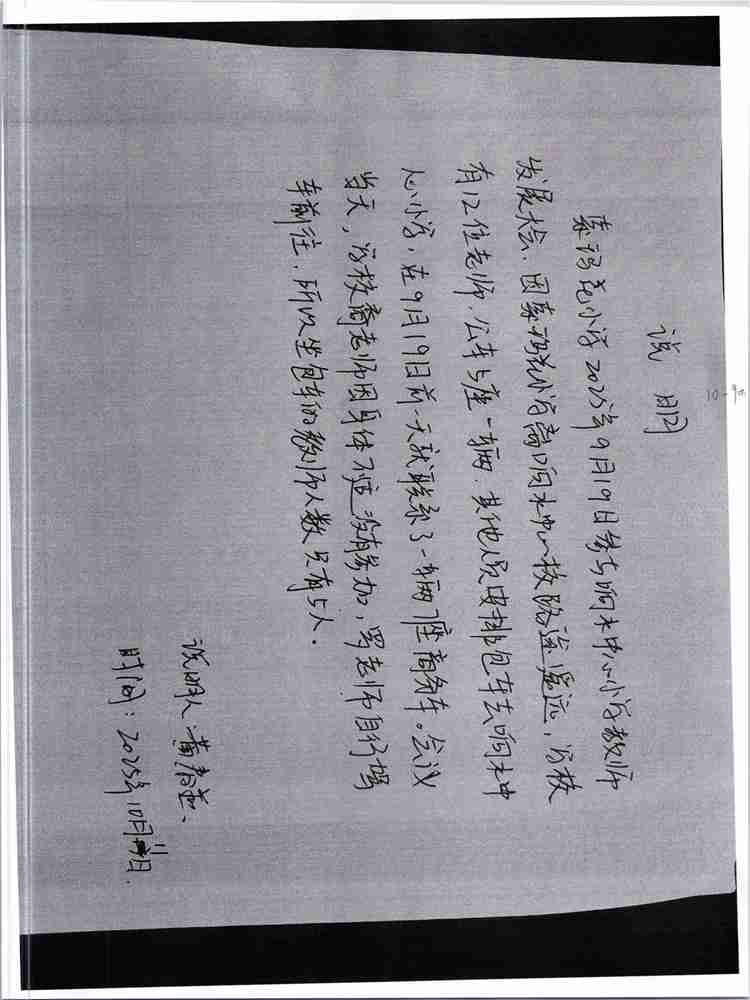 说 明
泰玛尧小学2025年9月19日参与响水中心小学教师
发展大会，因泰玛尧小学离响水中心校路途遥远，学校
有12位老师，公车5座一辆，其他人员安排包车去响水中
心小学，在9月19日前一天就联系了一辆7座商务车。会议
当天，学校高老师因身体不适没有参加，罗老师自行驾
车前往，所以坐包车的教师人数只有5人。
说明人：黄春
时间：2025年10月11日.
10-9